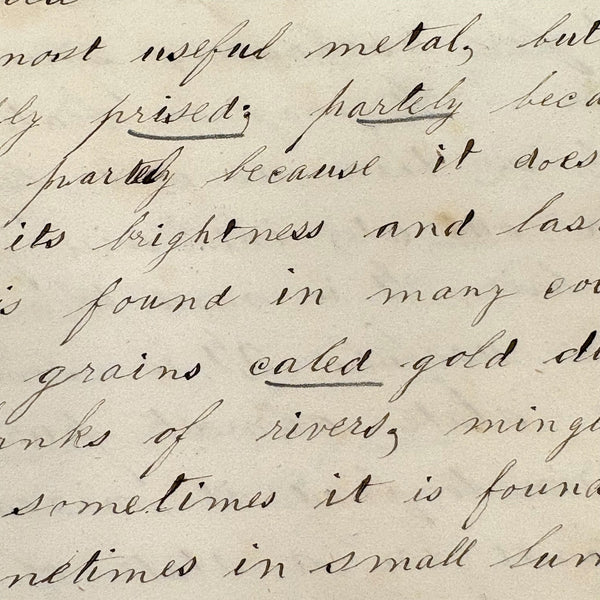 most useful metal, but
ly prised; partely beca
partely because it does
its brightness and las
is found in many cou
grains caled gold du
anks of rivers, ming
sometimes it is found
metimes in small lum